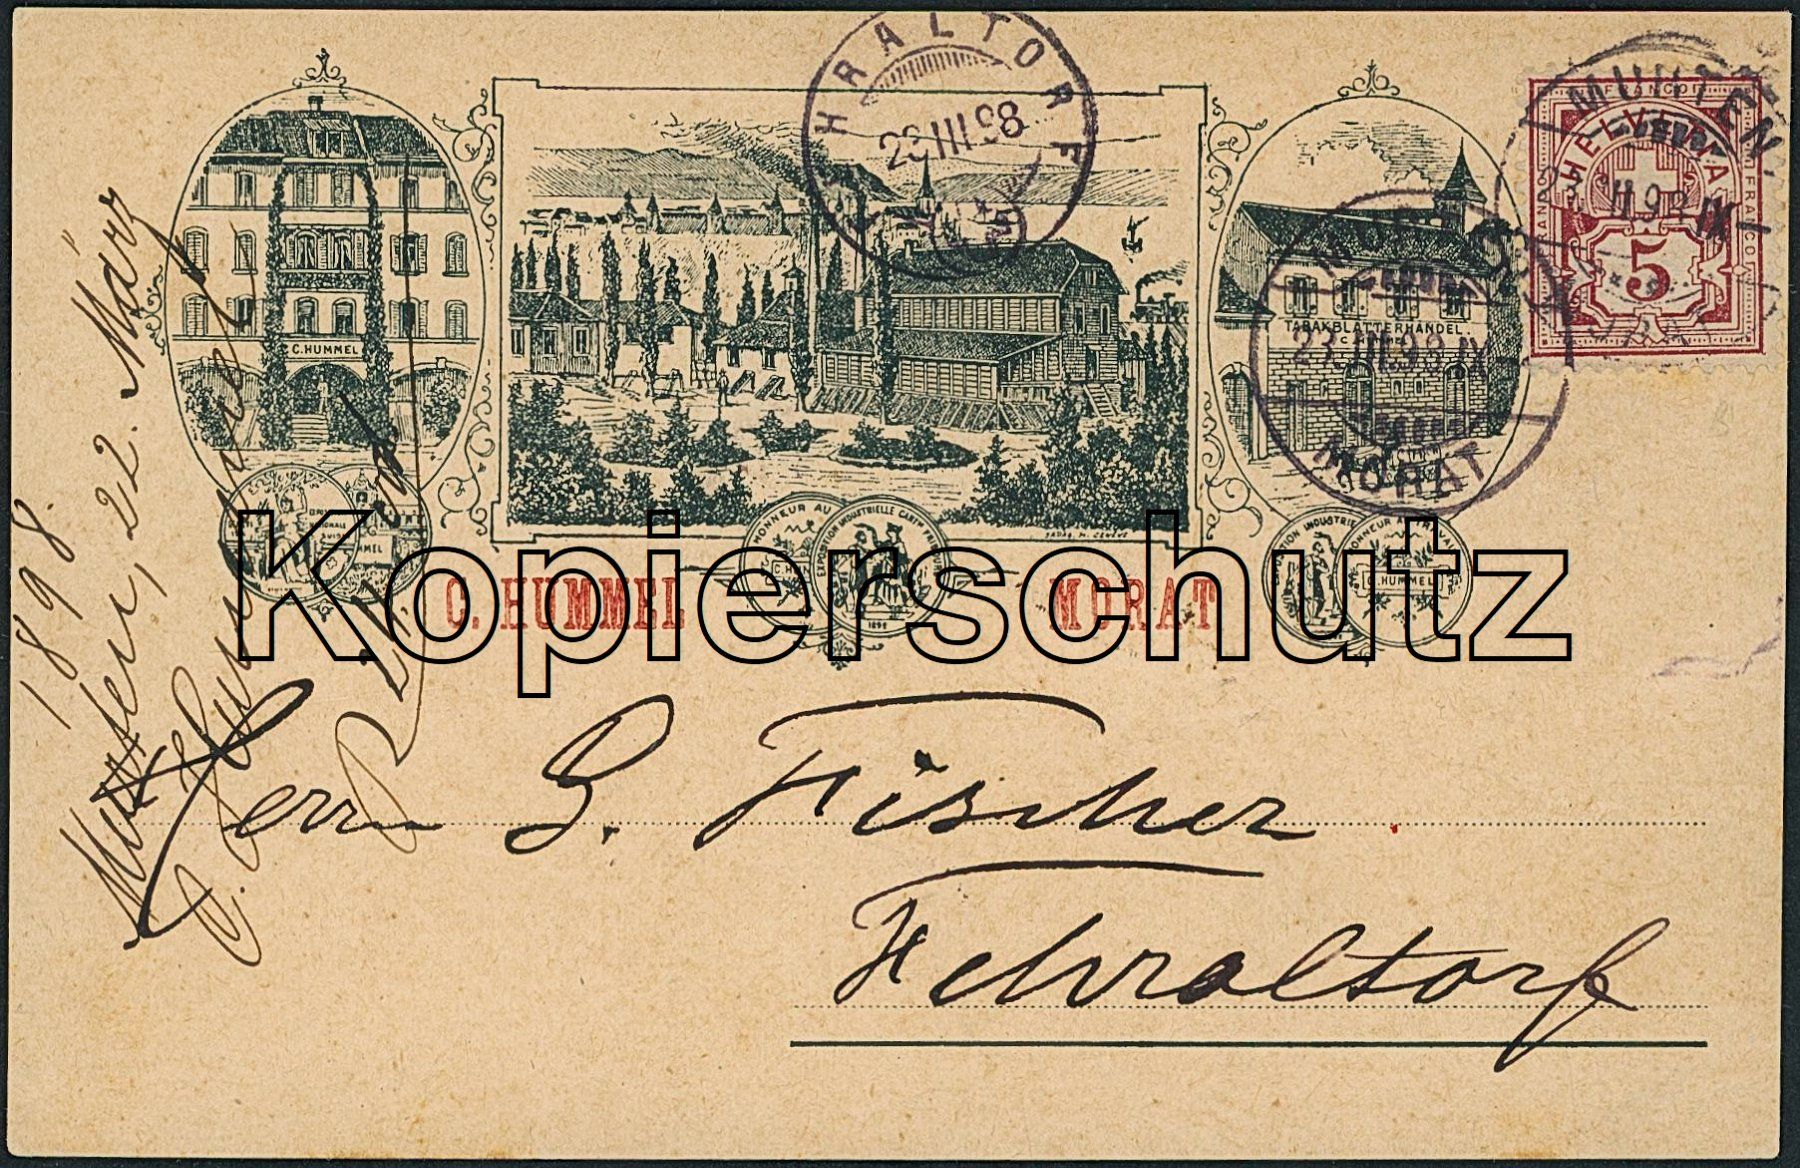 FEHRALTORF
23 III 98
MURTEN
FRANCO
HELVETIA
FRANCO
5
MURTEN
23.III.98.IX
MORAT
C. HUMMEL
TABAKBLÄTTERHANDEL.
C. HUMMEL MORAT
HONNEUR AU
EXPOSITION INDUSTRIELLE CANT.
C. HUMMEL
Kopierschutz
Murten, 22. März
1898.
Herrn G. Fischer
Fehraltorf